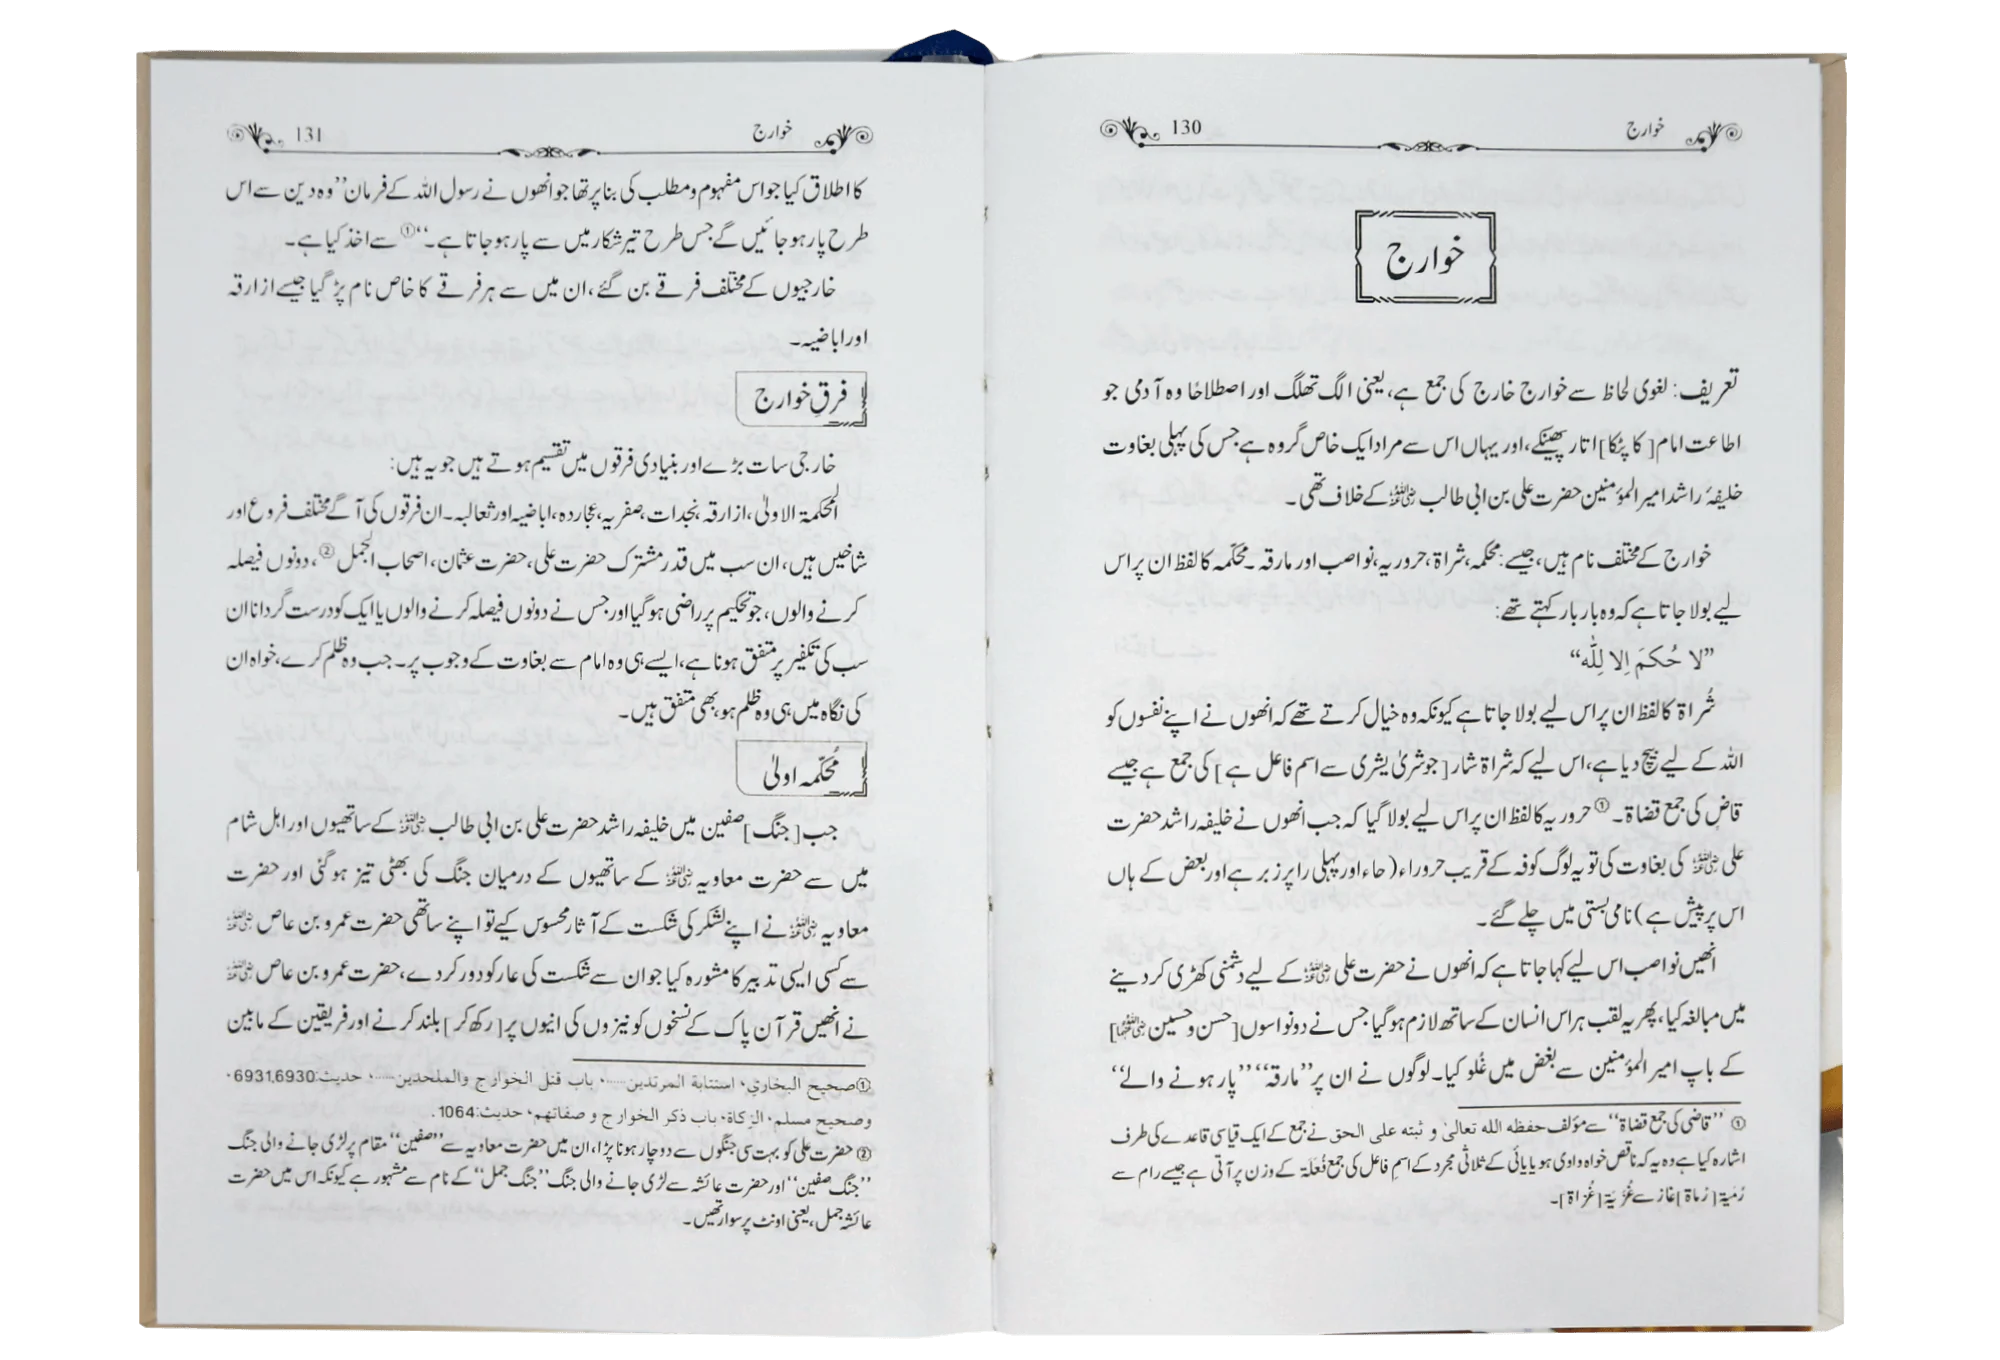 خوارج 130
خوارج
تعریف: لغوی لحاظ سے خوارج خارج کی جمع ہے، یعنی الگ تھلگ اور اصطلاحًا وہ آدمی جو
اطاعت امام [کا پٹکا] اتار پھینکے، اور یہاں اس سے مراد ایک خاص گروہ ہے جس کی پہلی بغاوت
خلیفۂ راشد امیر المؤمنین حضرت علی بن ابی طالب رضی اللہ عنہ کے خلاف تھی۔
خوارج کے مختلف نام ہیں، جیسے: محکمہ، شراۃ، حروریہ، نواصب اور مارقہ۔ محکّمہ کا لفظ ان پر اس
لیے بولا جاتا ہے کہ وہ بار بار کہتے تھے:
”لا حُکمَ اِلا لِلّٰہ“
شُراۃ کا لفظ ان پر اس لیے بولا جاتا ہے کیونکہ وہ خیال کرتے تھے کہ انھوں نے اپنے نفسوں کو
اللہ کے لیے بیچ دیا ہے، اس لیے کہ شراۃ شار [جو شریٰ یشری سے اسم فاعل ہے] کی جمع ہے جیسے
قاضٍ کی جمع قضاۃ۔① حروریہ کا لفظ ان پر اس لیے بولا گیا کہ جب انھوں نے خلیفہ راشد حضرت
علی رضی اللہ عنہ کی بغاوت کی تو یہ لوگ کوفہ کے قریب حروراء (حاء اور پہلی را پر زبر ہے اور بعض کے ہاں
اس پر پیش ہے) نامی بستی میں چلے گئے۔
انھیں نواصب اس لیے کہا جاتا ہے کہ انھوں نے حضرت علی رضی اللہ عنہ کے لیے دشمنی کھڑی کر دینے
میں مبالغہ کیا، پھر یہ لقب ہر اس انسان کے ساتھ لازم ہو گیا جس نے دو نواسوں [حسن و حسین رضی اللہ عنہما]
کے باپ امیر المؤمنین سے بغض میں غُلو کیا۔ لوگوں نے ان پر ”مارقہ“ ”پار ہونے والے“
① ”قاضی کی جمع قضاۃ“ سے مؤلف حفظه الله تعالیٰ و ثبته علی الحق نے جمع کے ایک قیاسی قاعدے کی طرف
اشارہ کیا ہے وہ یہ کہ ناقص خواہ واوی ہو یا یائی کے ثلاثی مجرد کے اسمِ فاعل کی جمع فُعَلَة کے وزن پر آتی ہے جیسے رام سے
رُمَیَة [رُماۃ] غاز سے غُزَیَة [غُزاۃ]۔
خوارج 131
کا اطلاق کیا جو اس مفہوم و مطلب کی بنا پر تھا جو انھوں نے رسول اللہ کے فرمان ”وہ دین سے اس
طرح پار ہو جائیں گے جس طرح تیر شکار میں سے پار ہو جاتا ہے۔“① سے اخذ کیا ہے۔
خارجیوں کے مختلف فرقے بن گئے، ان میں سے ہر فرقے کا خاص نام پڑ گیا جیسے ازارقہ
اور اباضیہ۔
فرقِ خوارج
خارجی سات بڑے اور بنیادی فرقوں میں تقسیم ہوتے ہیں جو یہ ہیں:
المحکمۃ الاولیٰ، ازارقہ، نجدات، صفریہ، عجاردہ، اباضیہ اور ثعالبہ۔ ان فرقوں کی آگے مختلف فروع اور
شاخیں ہیں، ان سب میں قدر مشترک حضرت علی، حضرت عثمان، اصحاب الجمل②، دونوں فیصلہ
کرنے والوں، جو تحکیم پر راضی ہو گیا اور جس نے دونوں فیصلہ کرنے والوں یا ایک کو درست گردانا ان
سب کی تکفیر پر متفق ہونا ہے، ایسے ہی وہ امام سے بغاوت کے وجوب پر۔ جب وہ ظلم کرے، خواہ ان
کی نگاہ میں ہی وہ ظلم ہو، بھی متفق ہیں۔
مُحکّمہ اولیٰ
جب [جنگ] صفین میں خلیفہ راشد حضرت علی بن ابی طالب رضی اللہ عنہ کے ساتھیوں اور اہل شام
میں سے حضرت معاویہ رضی اللہ عنہ کے ساتھیوں کے درمیان جنگ کی بھٹی تیز ہو گئی اور حضرت
معاویہ رضی اللہ عنہ نے اپنے لشکر کی شکست کے آثار محسوس کیے تو اپنے ساتھی حضرت عمرو بن عاص رضی اللہ عنہ
سے کسی ایسی تدبیر کا مشورہ کیا جو ان سے شکست کی عار کو دور کر دے، حضرت عمرو بن عاص رضی اللہ عنہ
نے انھیں قرآن پاک کے نسخوں کو نیزوں کی انیوں پر [رکھ کر] بلند کرنے اور فریقین کے مابین
① صحيح البخاري، استتابة المرتدين......، باب قتل الخوارج والملحدين......، حديث:6931,6930،
وصحيح مسلم، الزكاة، باب ذكر الخوارج و صفاتهم، حديث:1064.
② حضرت علی کو بہت سی جنگوں سے دوچار ہونا پڑا، ان میں حضرت معاویہ سے ”صفین“ مقام پر لڑی جانے والی جنگ
”جنگ صفین“ اور حضرت عائشہ سے لڑی جانے والی جنگ ”جنگ جمل“ کے نام سے مشہور ہے کیونکہ اس میں حضرت
عائشہ جمل، یعنی اونٹ پر سوار تھیں۔